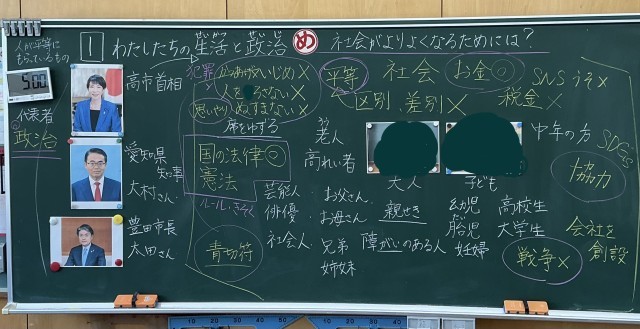 1 わたしたちの生活と政治
せいかつ
せいじ
め 社会がよりよくなるためには？
人が平等に
もっているもの
5:00
代表者
政治
高市首相
愛知県
知事
大村さん
豊田市長
太田さん
犯罪
いじめ×
人を
さない×
思いやり
ぬすまない×
席をゆずる
国の法律◎
憲法
ルール・きそく
青切符
平等
社会
お金◎
区別、差別×
税金×
SNS うそ×
SDGs
ろう
老人
高れい者
大人
子ども
中年の方
協力
芸能人
俳優
社会人
お父さん
お母さん
兄弟
姉妹
親せき
障がいのある人
幼児
たい
胎児
妊婦
高校生
大学生
会社を
創設
戦争×